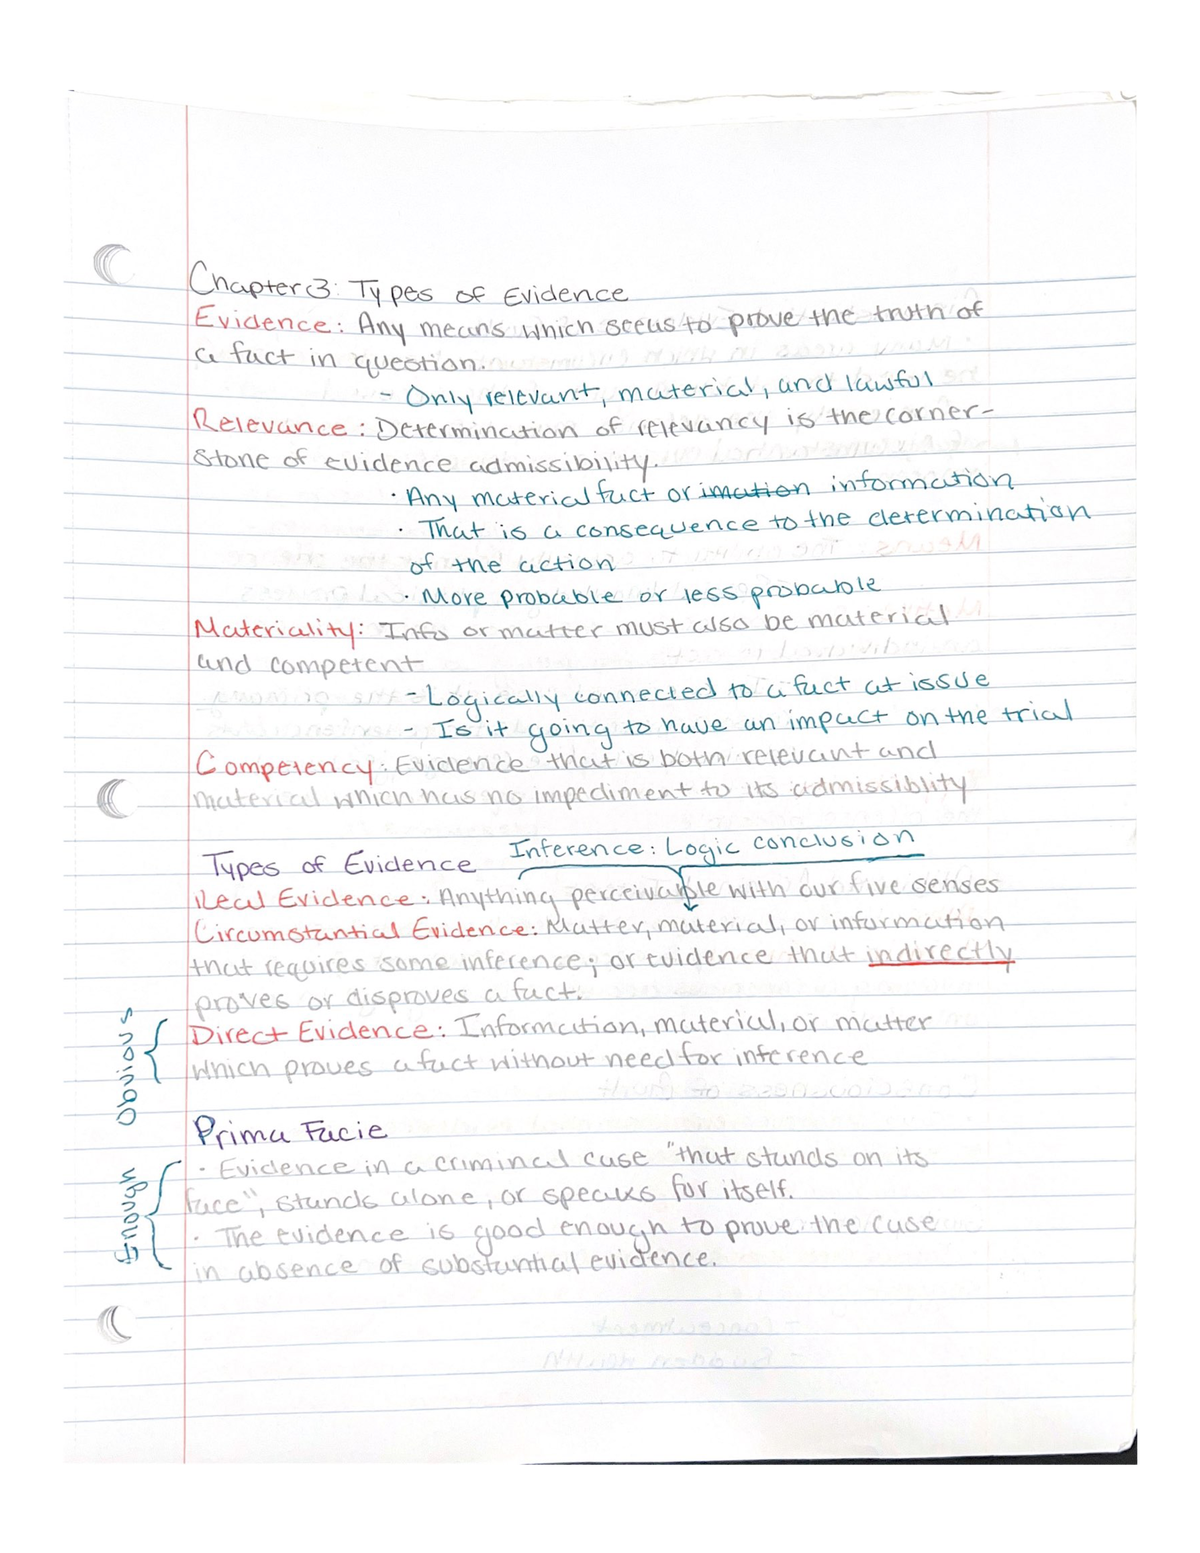 Chapter 3: Types of Evidence
Evidence: Any means which seeks to prove the truth of
a fact in question.
- Only relevant, material, and lawful
Relevance: Determination of relevancy is the corner-
stone of evidence admissibility.
· Any material fact or imation information
· That is a consequence to the determination
of the action
· More probable or less probable
Materiality: Info or matter must also be material
and competent
- Logically connected to a fact at issue
- Is it going to have an impact on the trial
Competency: Evidence that is both relevant and
material which has no impediment to its admissiblity
Inference: Logic conclusion
Types of Evidence
Real Evidence: Anything perceivable with our five senses
Circumstantial Evidence: Matter, material, or information
that requires some inference; or evidence that indirectly
proves or disproves a fact.
Obvious
Direct Evidence: Information, material, or matter
which proves a fact without need for inference
Prima Facie
Enough
· Evidence in a criminal case "that stands on its
face", stands alone, or speaks for itself.
· The evidence is good enough to prove the case
in absence of substantial evidence.